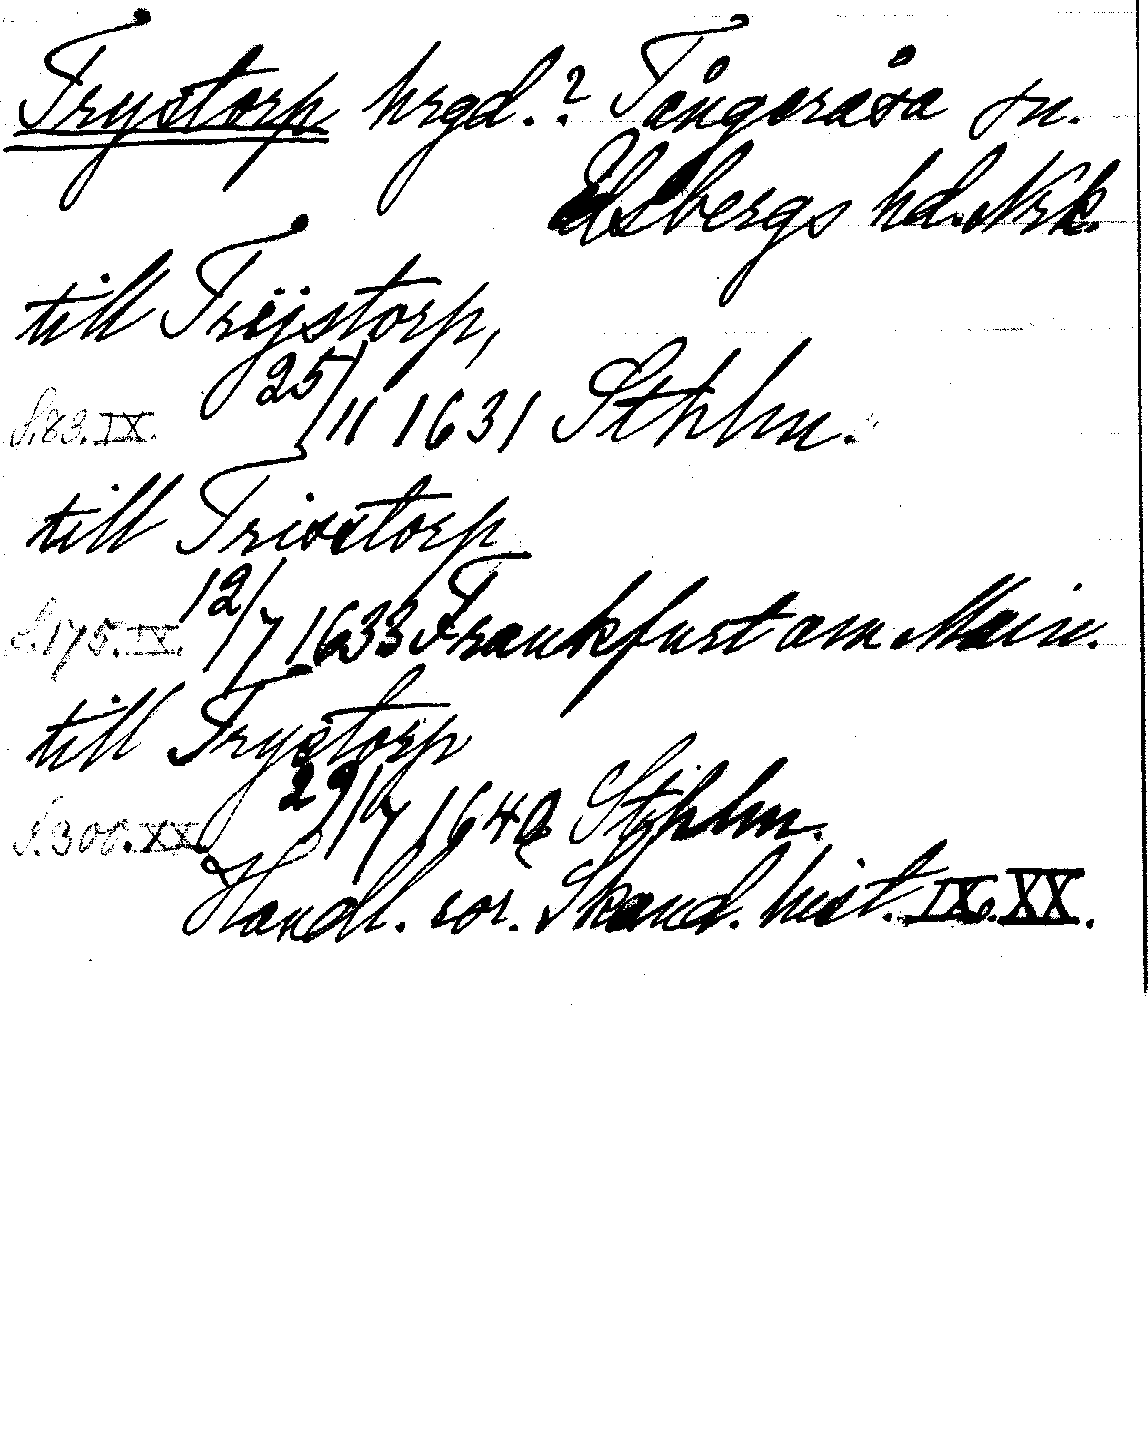 Trystorp hrgd.? Tångeråsa sn.
Edsbergs hd. Nrk.
till Trÿstorp,
S.83.IX. 25/11 1631 Sthlm.
till Tristorp
S.175.IX. 12/7 1633 Frankfurt am Main.
till Trystorp
S.300.XX 29/7 1640 Sthlm.
Handl. ror. Skand. hist. IX o. XX.